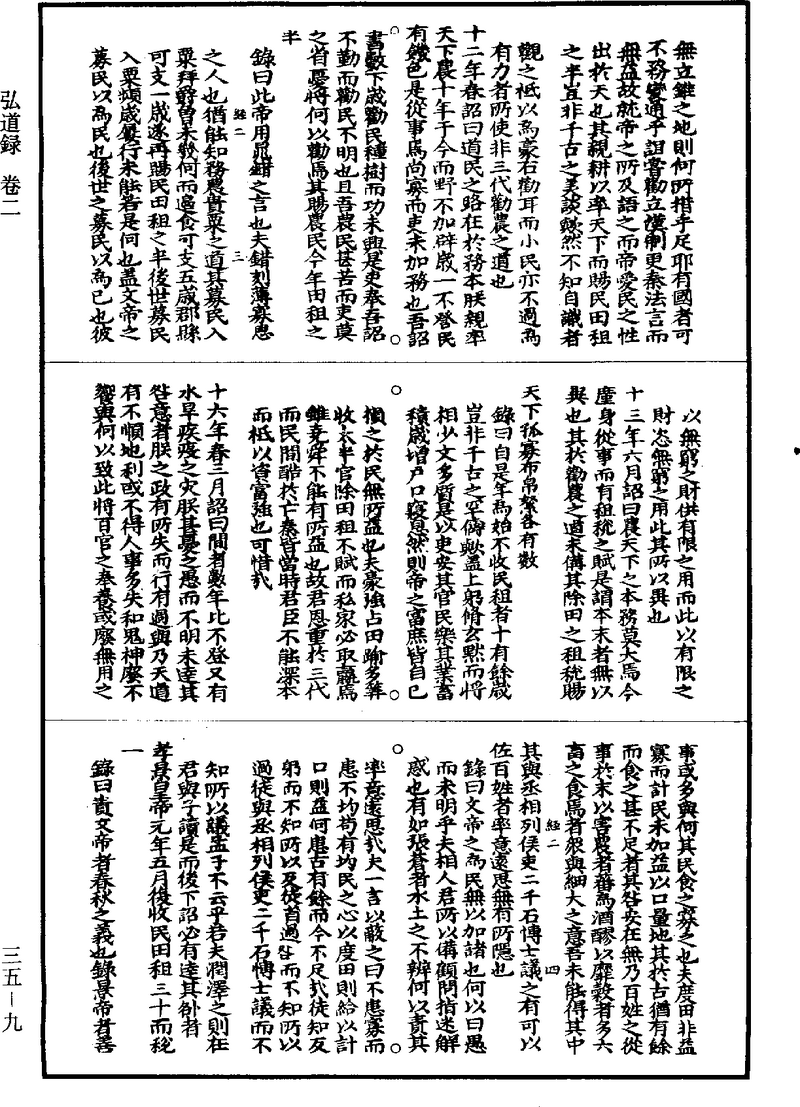 弘道録 卷二
三五-九
無立錐之地則何所措手足耶有國者可
不務變通乎詛嘗勸立漢制更秦法言而
無益故就帝之所及語之而帝愛民之性
出於天也其親耕以率天下而賜民田租
之半豈非千古之美談歟然不知自識者
觀之柢以為豪右勸耳而小民亦不過為
有力者所使非三代勸農之道也
十二年春詔曰道民之路在於務本朕親率
天下農十年于今而野不加辟歲一不登民
有饑色是從事焉尚寡而吏未加務也吾詔
書數下歲勸民種樹而功未興是吏奉吾詔
不勤而勸民不明也且吾農民甚苦而吏莫
之省憂將何以勸焉其賜農民今年田租之
半
錄曰此帝用晁錯之言也夫錯刻薄寡恩
之人也猶能知務農貴粟之道其募民入
經二 三
粟拜爵曾未幾何而邊食可支五歲郡縣
可支一歲遂再賜民田租之半後世募民
入粟頻歲屢行未能若是何也蓋文帝之
募民以為民也後世之募民以為己也彼
以無窮之財供有限之用而此以有限之
財恣無窮之用此其所以異也
十三年六月詔曰農天下之本務莫大焉今
廑身從事而有租稅之賦是謂本末者無以
異也其於勸農之道未備其除田之租稅賜
天下孤寡布帛絮各有數
錄曰自是年焉始不收民租者十有餘歲
豈非千古之罕儔歟蓋上躬脩玄默而將
相少文多質是以吏安其官民樂其業畜
積歲增戶口寖息然則帝之富庶皆自己
損之於民無所益也夫豪強占田踰多筭
收太半官除田租不賦而私家必取贏焉
雖堯舜不能有所益也故君恩重於三代
而民間酷於亡秦皆當時君臣不能深本
而柢以資富強也可惜哉
十六年春三月詔曰間者數年比不登又有
水旱疾疫之灾朕甚憂之愚而不明未達其
咎意者朕之政有所失而行有過與乃天道
有不順地利或不得人事多失和鬼神廢不
饗與何以致此將百官之奉養或廢無用之
事或多與何其民食之寡乏也夫度田非益
寡而計民未加益以口量地其於古猶有餘
而食之甚不足者其咎安在無乃百姓之從
事於末以害農者蕃為酒醪以靡穀者多六
畜之食焉者衆與細大之意吾未能得其中
經二 四
其與丞相列侯吏二千石博士議之有可以
佐百姓者率意遠思無有所隱也
錄曰文帝之為民無以加諸也何以曰愚
而未明乎夫相人君所以備顧問指迷解
惑也有如張蒼者水土之不辨何以責其
率意遠思哉夫一言以蔽之曰不患寡而
患不均苟有均民之心以度田則給以計
口則益何患古有餘而今不足哉徒知反
躬而不知所以及從首過咎而不知所以
過徒與丞相列侯吏二千石博士議而不
知所以議孟子不云乎若夫潤澤之則在
君與子讀是而後下詔必有達其卻者
孝景皇帝元年五月復收民田租三十而稅
一
錄曰責文帝者春秋之義也錄景帝者善